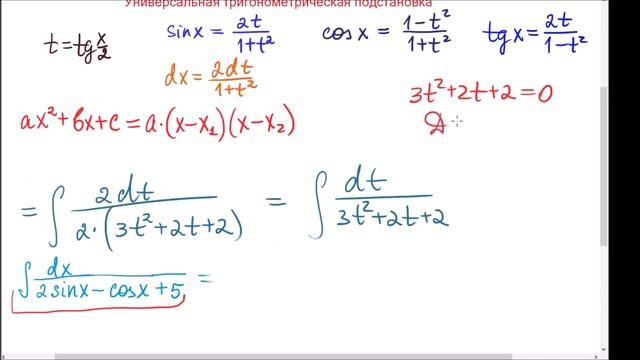 Универсальная тригонометрическая подстановка
t=tg x/2 sinx = 2t/(1+t²) cosx = (1-t²)/(1+t²) tgx = 2t/(1-t²)
dx = 2dt/(1+t²)
3t²+2t+2=0
ax²+bx+c=a·(x-x₁)(x-x₂) D
= ∫ 2dt/(2·(3t²+2t+2)) = ∫ dt/(3t²+2t+2)
∫ dx/(2sinx-cosx+5) =